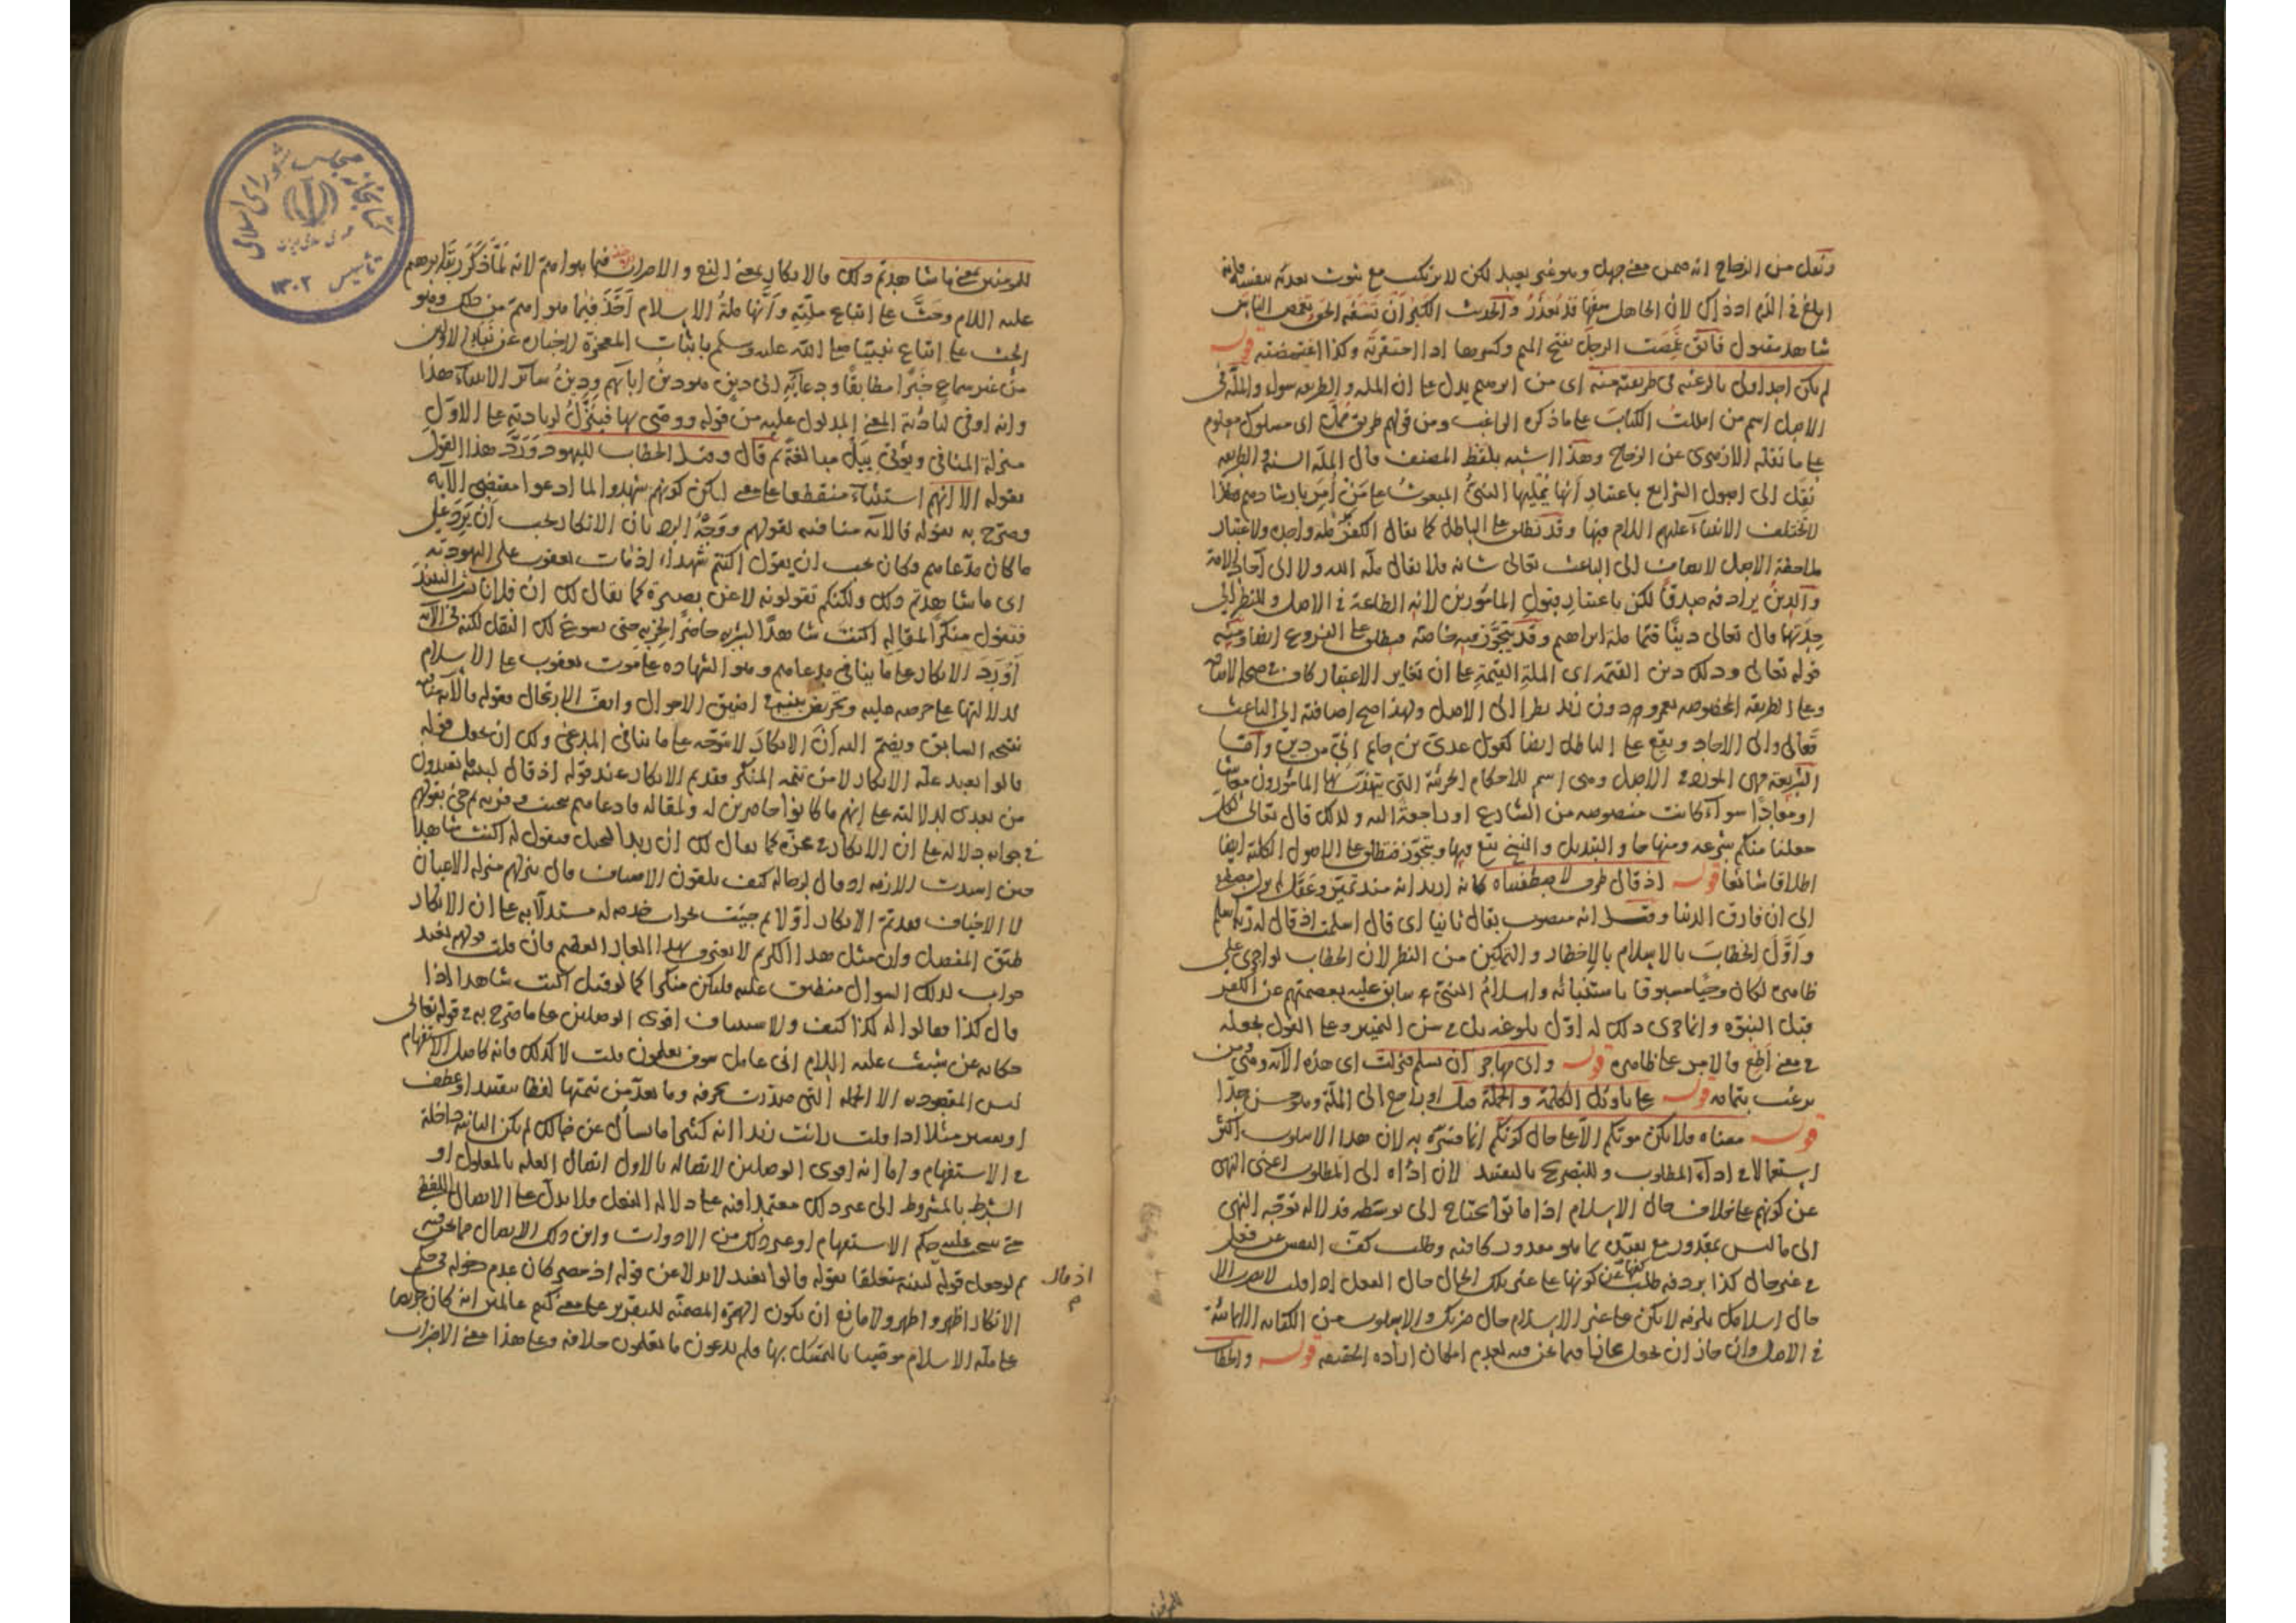 ونقل من الزجاج انه ضمن معنى جهل وهو غير بعيد لكن لا يرتكب مع ثبوت تعديه بنفسه فانه
ابلغ في الذم اذ ذاك لان الجاهل سفها قد يعذر والحديث الكبر ان تسفه الحق وتغمص الناس
شاهد مقبول فائق غمصت الرجل بفتح الميم وكسرها اذا احتقرته وكذا اغتمصته قوله
لم يكن احد اولى بالرغبة في طريقته منه اى من ابرهيم يدل على ان الملة والطريقة سواء والملة في
الاصل اسم من امللت الكتاب على ما ذكره الراغب ومن قولهم طريق ممل اى مسلوك معلوم
على ما نقله الازهرى عن الزجاج وهذا اشبه بلفظ المصنف قال الملة السنة والطريقة
نقل الى اصول الشرايع باعتبار انها يمليها النبي المبعوث على من امر بارشادهم
لا تختلف الانبياء عليهم السلام فيها وقد تطلق على الباطل كما يقال الكفر ملة واحدة ولاعتبار
ملاحظة الاصل لا يضاف الى الباعث تعالى شانه فلا يقال ملة الله ولا الى آحاد الامة
والدين يرادفه صدقا لكن باعتبار قبول المأمورين لانه الطاعة في الاصل وللنظر الى
جدتها قال تعالى دينا قيما ملة ابراهيم وقد يتجوز فيه خاصة فيطلق على الفروع ايضا ومنه
قوله تعالى وذلك دين القيمة اى الملة القيمة على ان تغاير الاعتبار كاف في صحة الاضافة
وعلى الطريقة المخصوصة بعمرو دون زيد نظرا الى الاصل ولهذا صح اضافته الى الباعث
تعالى والى الاحاد ويقع على الباطل ايضا كقول عدى بن حاتم انى من دين واما
الشريعة فهى المورد في الاصل وهى اسم للاحكام الجزئية التى يتهذب بها المأمورون معاشا
او معادا سواء كانت منصوصة من الشارع او راجعة اليه ولذلك قال تعالى لكل
جعلنا منكم شرعة ومنهاجا والتبديل والنسخ يقع فيها ويتجوز فتطلق على الاصول الكلية ايضا
اطلاقا شائعا قوله اذ قال ظرف لاصطفيناه كانه اريد انه منذ تميز وعقل
الى ان فارق الدنيا وقيل انه منصوب بقال ثانيا اى قال اسلمت اذ قال له ربه اسلم
واول الخطاب بالاسلام بالاخطار والتمكين من النظر لان الخطاب لو اجرى على
ظاهره لكان وحيا مسبوقا باستنبائه واسلام النبي سابق عليه بعصمتهم عن الكفر
قبل النبوة وانما جرى ذلك له اول بلوغه بل في سن التمييز وعلى القول بجعله
في معنى اطع فالامر على ظاهره قوله وابى مهاجر ان يسلم فنزلت اى هذه الآية ومن
يرغب بتمامه قوله على تاويل الكلمة والجملة راجع الى الملة وهو حسن جدا
قوله معناه فلا يكن موتكم الا على حال كونكم انما فسره به لان هذا الاسلوب اكثر
استعمالا في اداء المطلوب وللتصريح بالمقصد لان اداه الى المطلوب اعنى النهى
عن كونهم على خلاف حال الاسلام اذا ماتوا يحتاج الى توسط فدلالة توجه النهى
الى ما ليس بمقدور مع تعينه بما هو مقدور كافية وطلب كف النفس عن فعل
في غير حال كذا يردفه طلب كفها عن كونها على غير تلك الحال حال الفعل اذا قلت لا تضرب الا
حال اسلامك يلزمه لا يكن على غير الاسلام حال ضربك والاسلوب من الكناية الايمائية
في الاصل وان جاز ان يجعل مجازا فيما نحن فيه لعدم امكان ارادة الحقيقة قوله والخطاب
للمؤمنين بمعنى ما شاهدتم ذلك فالانكار بمعنى النفع والاضراب فيما هو اهم لانه لما ذكر ربنا ابرهيم
عليه السلام وحث على اتباع ملته وانها ملة الاسلام اخذ فيما هو اهم من ذلك وهو
الحث على اتباع نبينا صلى الله عليه وسلم باثبات المعجزة لاخباره عن نباء الاولين
من غير سماع خبرا مطابقا ودعائه الى دين هو دين ابائهم ودين سائر الانبياء هذا
وانه اوفى لتأدية المعنى المدلول عليه من قوله ووصى بها فينزل لزيادته على الاول
منزلة المنافي ويؤتى ببل مبالغة ثم قال وقيل الخطاب لليهود ورد هذا القول
بقوله الا انهم استثناء منقطعا على معنى لكن كونهم شهدوا لما ادعوا مقتضى الآية
وصرح به بقوله فالآية منافية لقولهم ووجه الرد بان الانكار يجب ان يرد على
ما كان مدعاهم وكان يجب ان يقول اكنتم شهداء اذ مات يعقوب على اليهودية
اى ما شاهدتم ذلك ولكنكم تقولونه لا عن بصيرة كما يقال لك ان فلانا شرب
فتقول منكرا لمقاله اكنت شاهدا لشربه حاضرا لحزبه حتى يسوغ لك النقل لكنه في الآية
اورد الانكار على ما ينافي مدعاهم وهو الشهادة على موت يعقوب على الاسلام
لدلالتها على حرصه عليه وتحريض بنيه في اضيق الاحوال وازف الارتحال فقوله فالآية منافية
نتيجة السابق ويضم اليه ان الانكار لا يتوجه على ما ينافي المدعى ولك ان تجعل قوله
قالوا نعبد علة الانكار لا من تتمة المنكر فقديم الانكار عند قوله اذ قال لبنيه ما تعبدون
من بعدى لدلالته على انهم ما كانوا حاضرين له ولمقاله فادعاهم
في جوابه دلالة على ان الانكار في محزه كما يقال لك ان زيدا فتقول له اكنت شاهدا
حين اشتدت الازمة اذ قال لرجاله كيف تلقون الاضياف قال ننزلهم منزلة الاعيان
لا الاخياف فقد تم الانكار اولا ثم جيئت بجواب خدمه له مستدلا به على ان الانكار
طبق المفصل وان مثل هذا الكريم لا يعترى بهذا العار العظيم فان قلت قولهم نعبد
جواب لذلك السؤال منطبق عليه فليكن منكرا كما لو قيل اكنت شاهدا اذا
قال كذا فقالوا له كذا كيف والاستيناف اقوى الوصلين على ما صرح به في قوله تعالى
حكاية عن شعيب عليه السلام انى عامل سوف تعلمون قلت لا كذلك فانه كامل الاستفهام
ليس المقصود به الا الجملة التى صدرت بحرفه وما بعد من تتمتها لفظا بتقييد او عطف
او تفسير مثلا اذا قلت رأيت زيدا انه كثيرا ما يسأل عن حالك لم يكن الثانية داخلة
في الاستفهام واما انه اقوى الوصلين لاتصاله بالاول اتصال العلة بالمعلول او
الشرط بالمشروط الى غير ذلك معتمدا فيه على دلالة العقل فلا يدل على الاتصال اللفظى
حتى ينسحب عليه حكم الاستفهام او غير ذلك من الادوات واين ذلك الاتصال مما نحن فيه
ثم لو جعل قوله لبنيه متعلقا بقوله قالوا نعبد لا بدلا عن قوله اذ حضر كان عدم دخوله في حكم
اذ قال
الانكار اظهر واظهر ولا مانع ان يكون الهمزة المضمنة للتقرير على معنى كنتم عالمين انه كان حريصا
على ملة الاسلام موصيا بالتمسك بها فلم تدعون ما تعلمون خلافه وعلى هذا معنى الاضراب
كتابخانه مجلس شوراى اسلامى
تأسيس ١٣٠٢